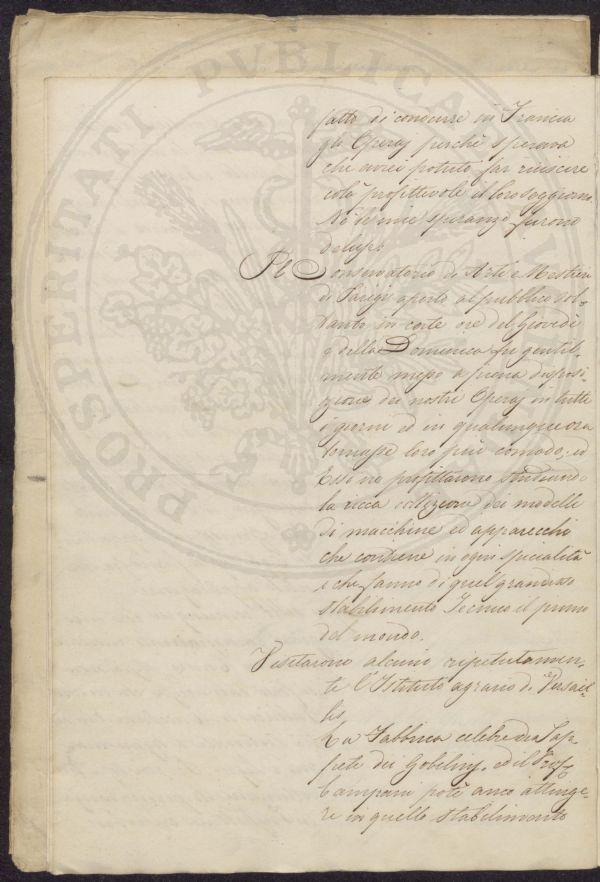 PROSPERITATI PUBLICAE
fatto di condurre in Francia
gli Operaj perchè sperava
che avrei potuto far riuscire
colà profittevole il loro soggiorno
Nè le mie speranze furono
deluse.
Il Conservatorio di Arti e Mestieri
di Parigi aperto al pubblico sol-
tanto in certe ore del Giovedì
e della Domenica fu gentil-
mente messo a piena disposi-
zione dei nostri Operaj in tutti
i giorni ed in qualunque ora
tornasse loro più comodo; ed
Essi ne profittarono studiando
la ricca collezione dei modelli
di macchine ed apparecchi
che contiene in ogni specialità
e che fanno di quel grandioso
stabilimento Tecnico il primo
del mondo.
Visitarono alcuni ripetutamen-
te l'Istituto agrario di Versail-
les
La Fabbrica celebre dei Tap-
peti dei Gobelins, ed il Prof.
Campani potè anco attinge-
re in quello stabilimento